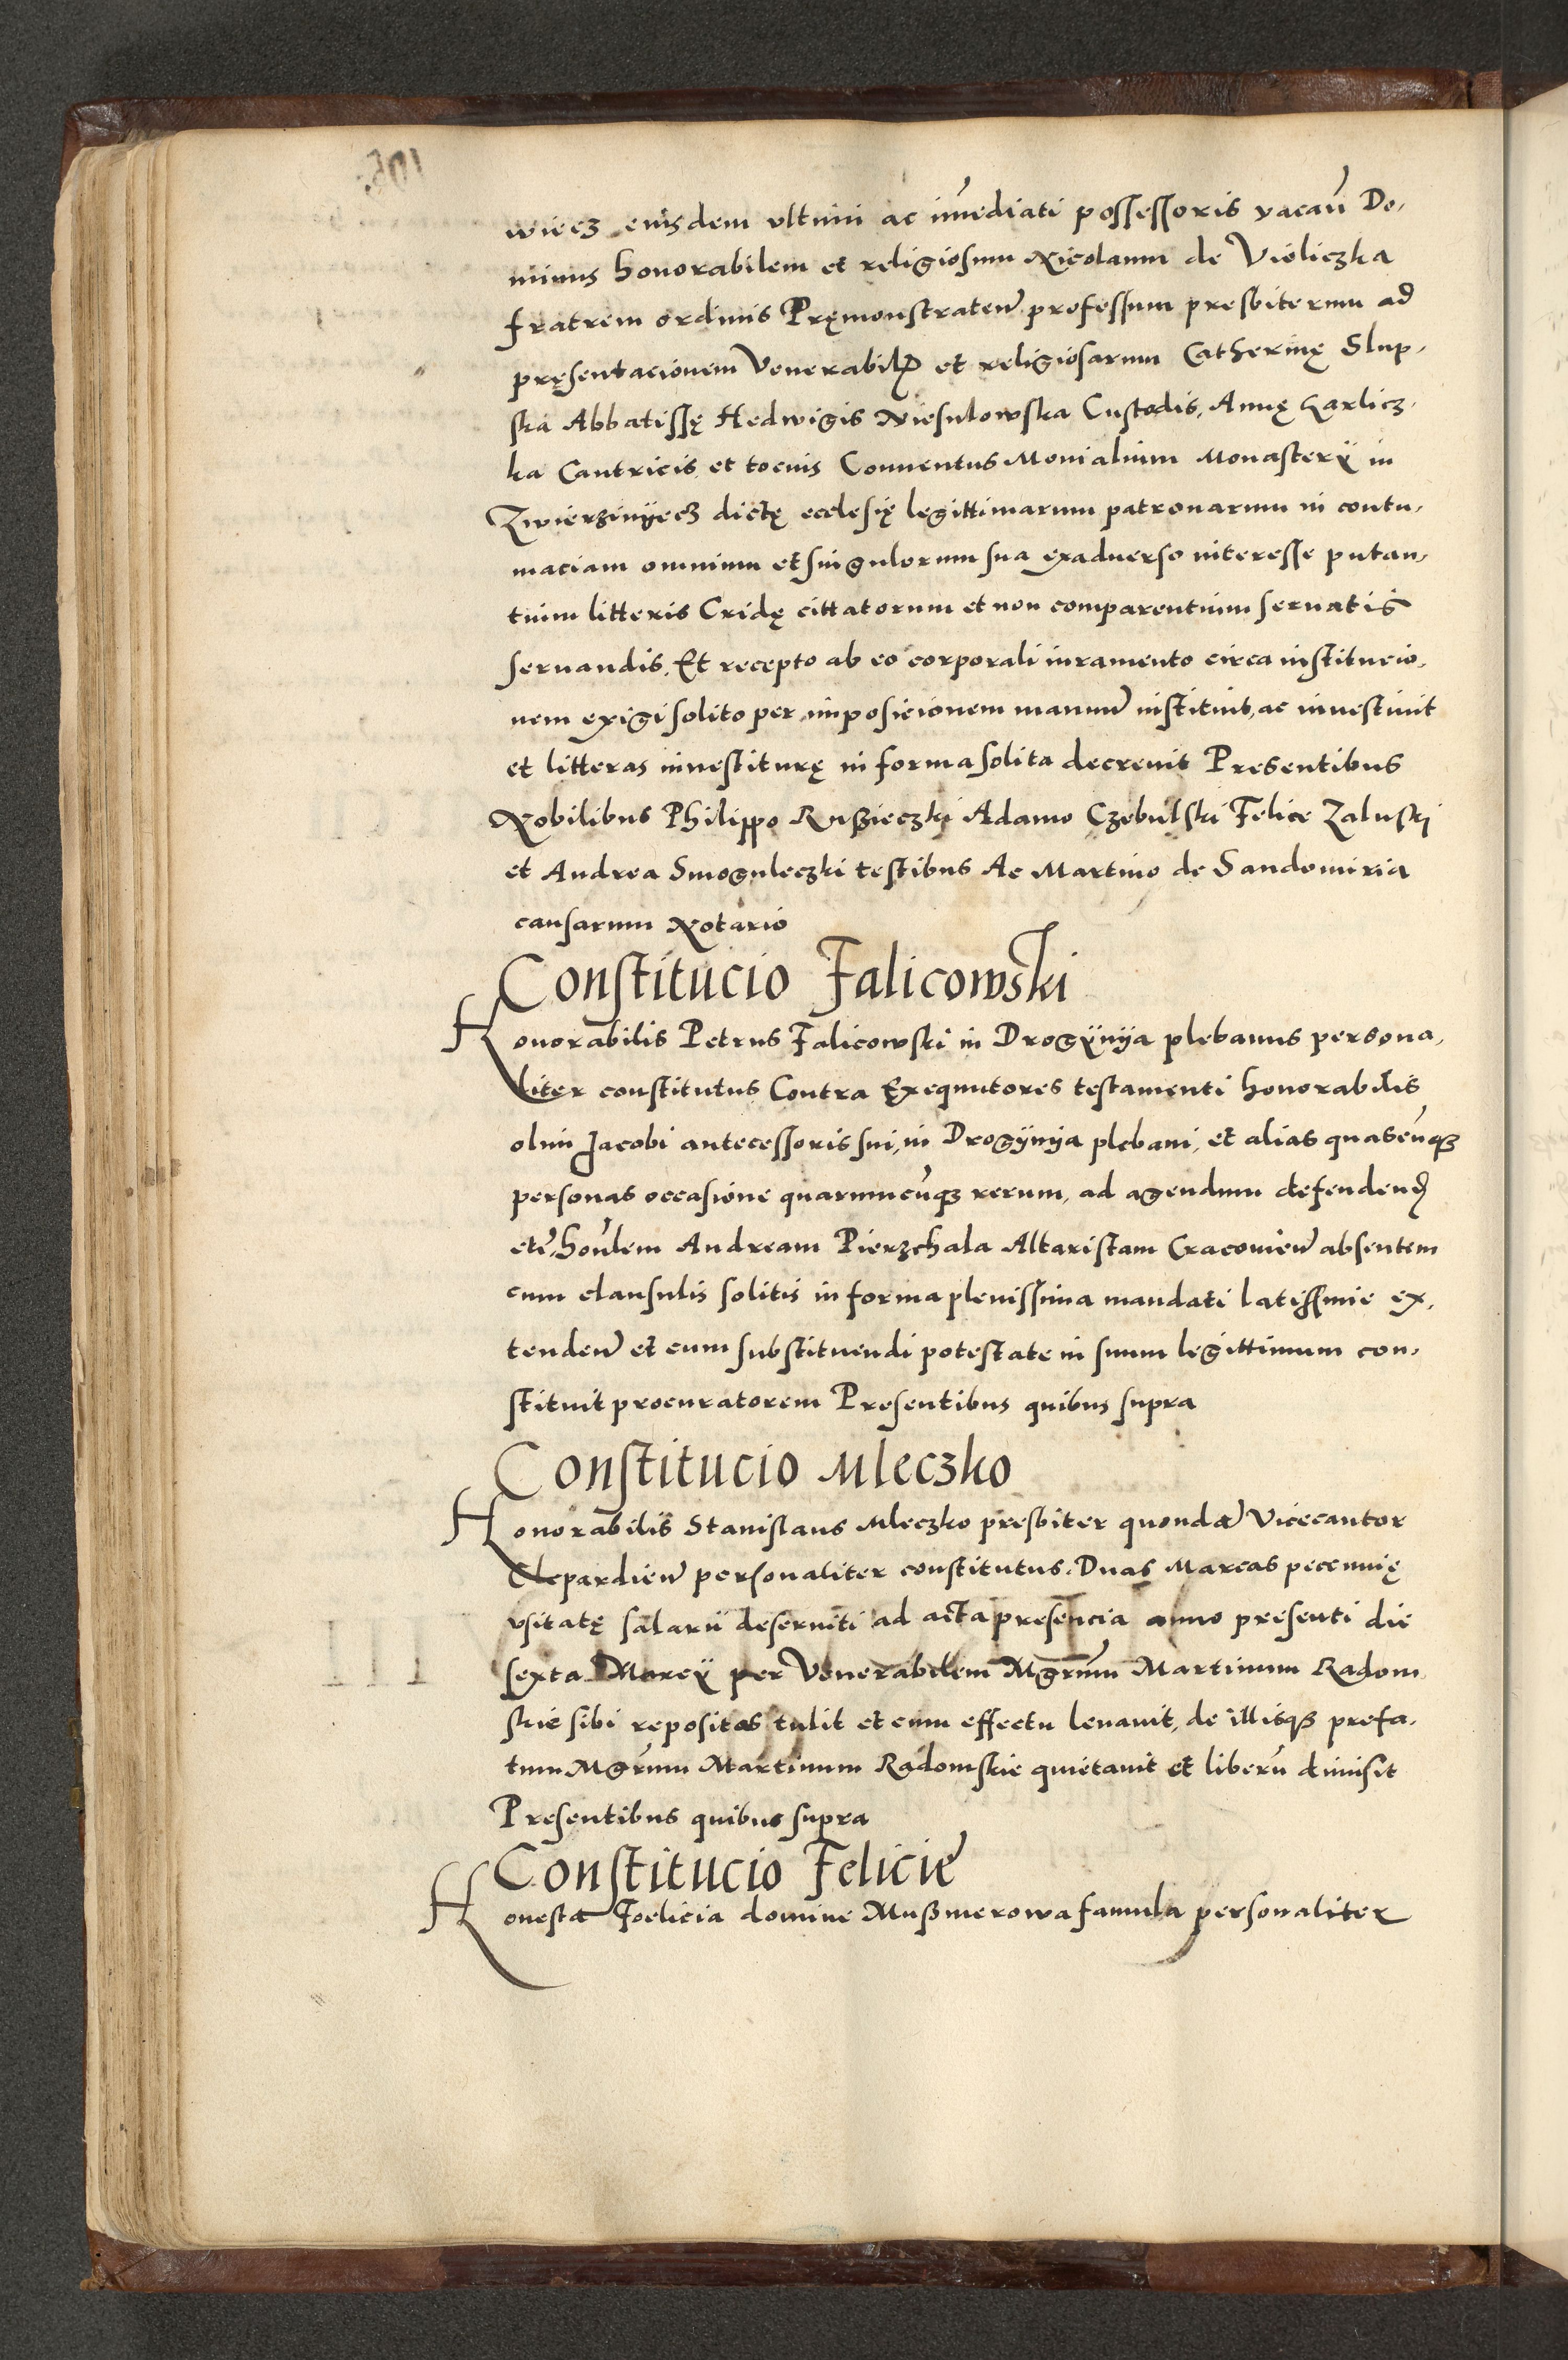 wiecz eiusdem vltimi ac im̃ediati possessoris vacan̄ Do-
minus honorabilem et religiosum Nicolaum de Vieliczka
fratrem ordinis Pręmonstraten̄ professum presbiterum ad
pręsentacionem Venerabiliū et religiosarum Catherinę Slup-
ska Abbatissę Hedwigis Niesulowska Custodis, Annę Karlicz-
ka Cantricis et tocius Conuentus Monialium Monasterÿ in
Zwierzinÿecz dictę ecclesię legittimarum patronarum in contu-
maciam omnium et singulorum sua exaduerso interesse putan-
tium litteris Cridę cittatorum et non comparentium seruatis
seruandis. Et recepto ab eo corporali iuramento circa institucio-
nem exigi solito per imposicionem manuū instituit, ac inuestiuit
et litteras inuestiturę in forma solita decreuit Presentibus
Nobilibus Philippo Ruszieczki Adamo Czebulski Felice Zaluski
et Andrea Smoguleczki testibus Ac Martino de Sandomiria
causarum Notario
Constitucio Falicowski
Honorabilis Petrus Falicowski in Drogÿnÿa plebanus persona-
liter constitutus Contra Exequutores testamenti honorabilis
olim Jacobi antecessoris sui, in Drogÿnÿa plebani, et alias quascūqȝ
personas occasione quarumcūqȝ rerum, ad agendum defendendū
etc̄ hon̄lem Andream Pierzchala Altaristam Cracouien̄ absentem
cum clausulis solitis in forma plenissima mandati latissime ex-
tenden̄ et cum substituendi potestate in suum legittimum con-
stituit procuratorem Presentibus quibus supra
Constitucio Mleczko
Honorabilis Stanislaus Mleczko presbiter quondā Vicecantor
Clepardien̄ personaliter constitutus. Duas Marcas pecunię
vsitatę salarii deseruiti ad acta presencia anno presenti die
sexta Marcÿ per Venerabilem Mgrūm Martinum Radom
skie sibi repositas tulit et cum effectu leuauit, de illisqȝ prefa-
tum Mgrūm Martinum Radomskie quietauit et liberū dimisit
Presentibus quibus supra
Constitucio Felicie
Honesta Foelicia domine Muszmerowa famula personaliter